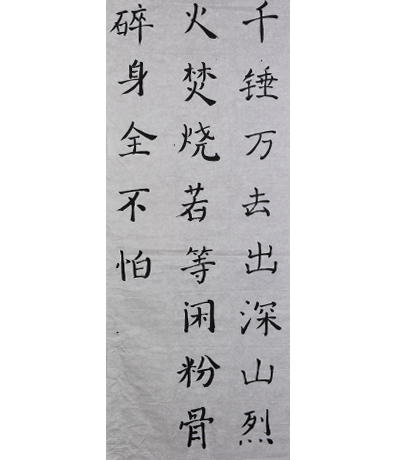 千锤万去出深山烈
火焚烧若等闲粉骨
碎身全不怕